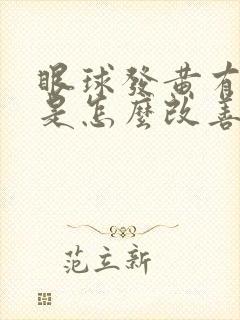 眼球發黃有
是怎麼改善
范立新